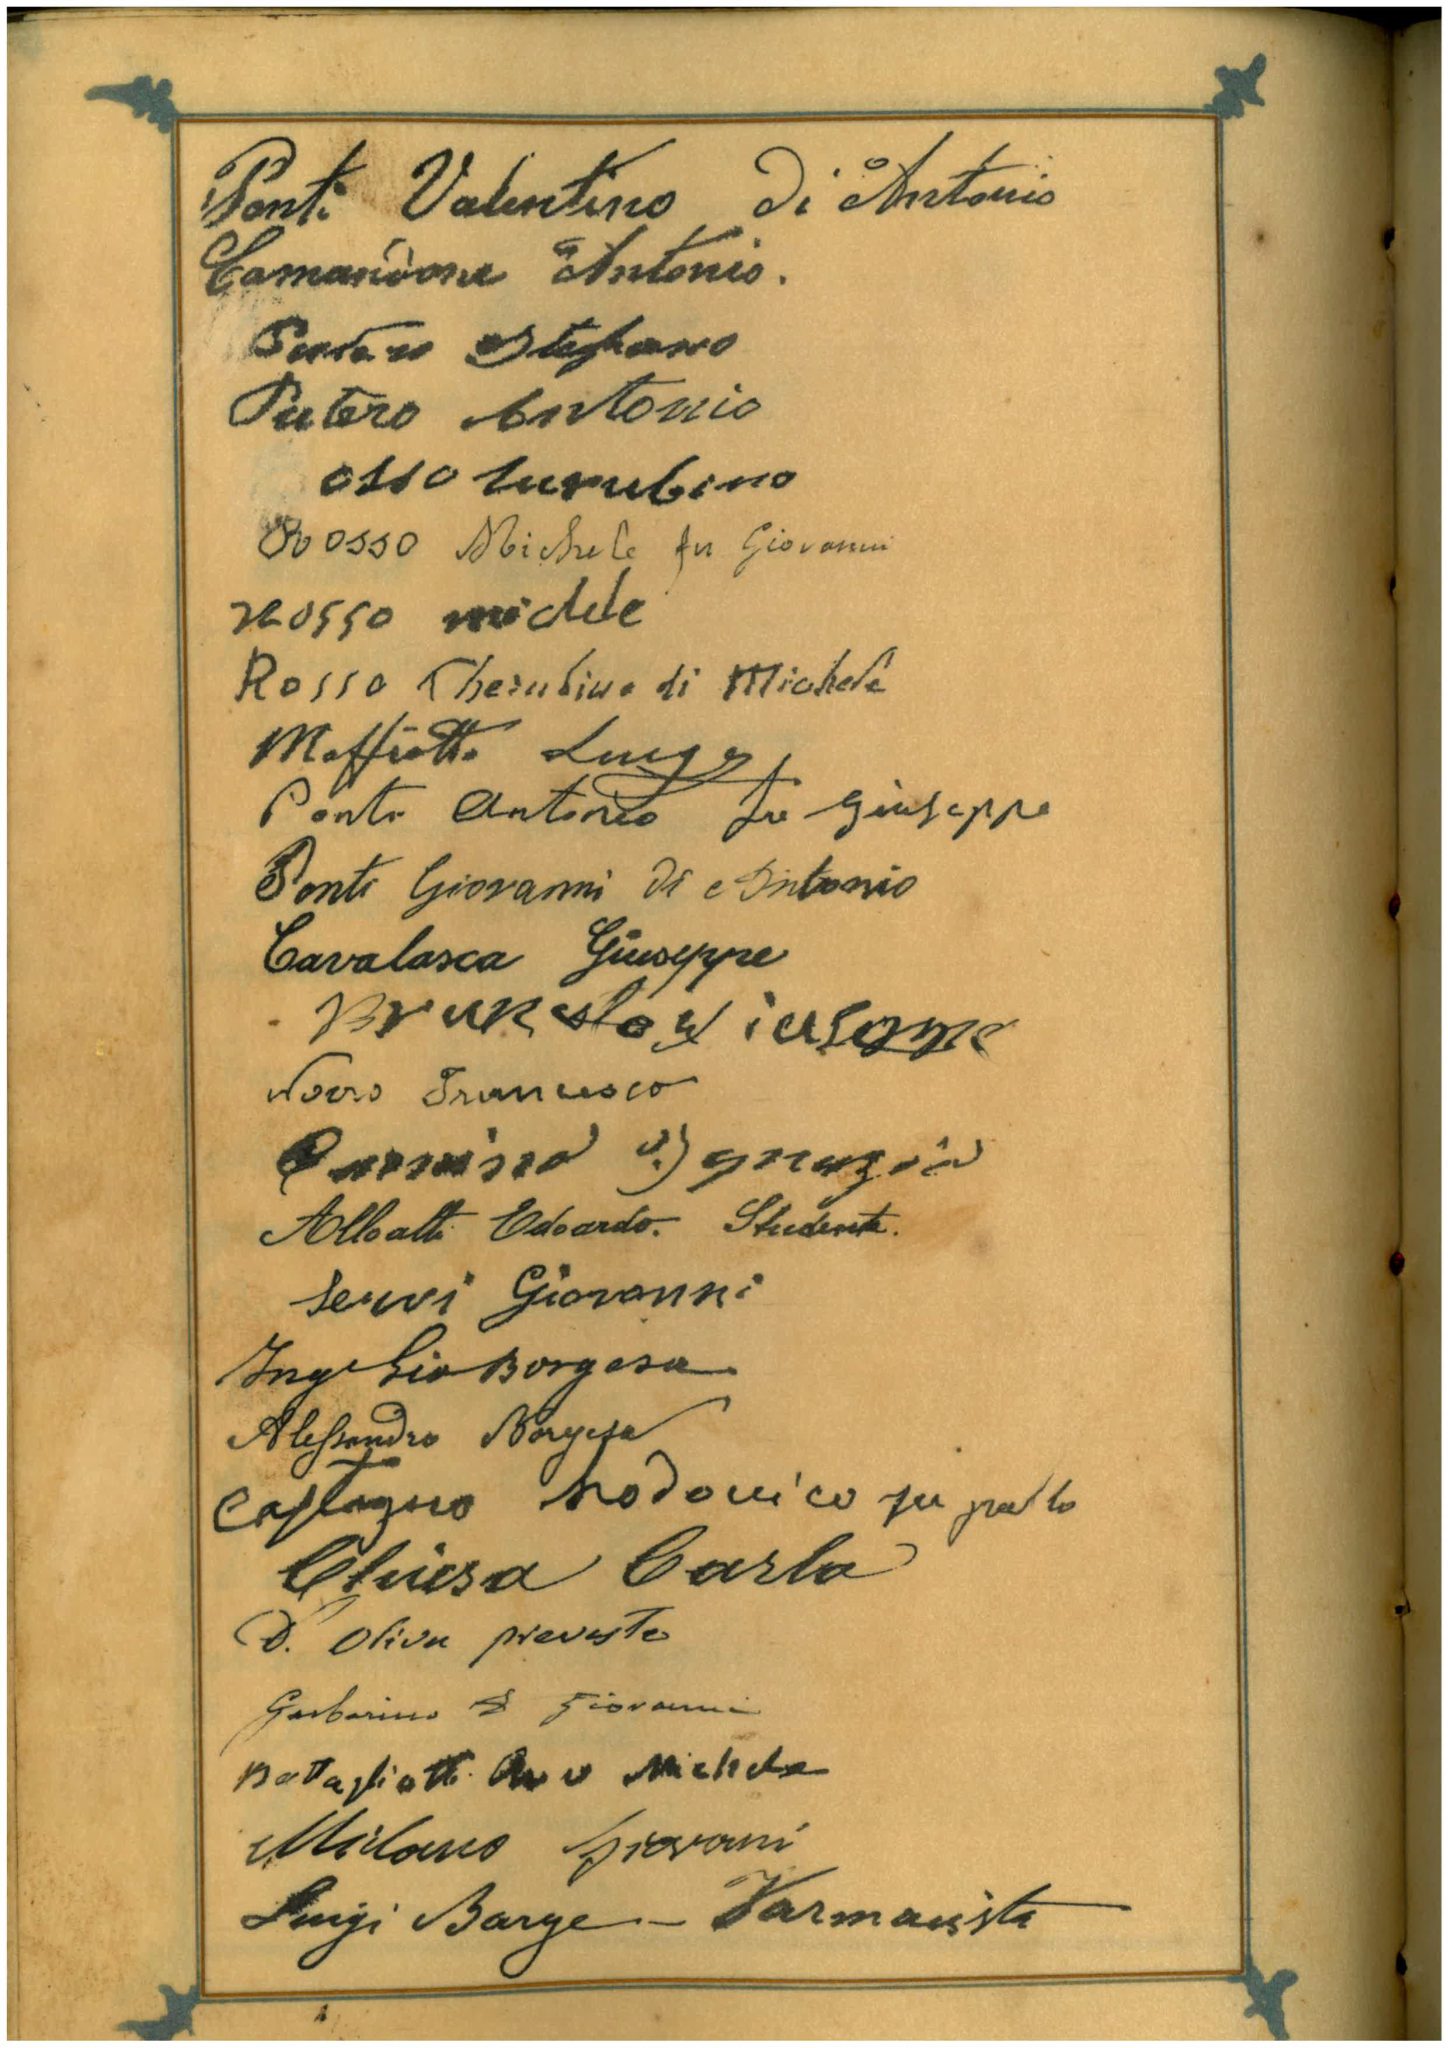 Ponti Valentino di Antonio
Comandone Antonio.
Stefano
Putero Antonio
osso
Rosso Michele fu Giovanni
Rosso michele
Rosso Cherubino di Michele
Maffiotto Luigi
Ponti Antonio fu Giuseppe
Ponti Giovanni di Antonio
Cavalasca Giuseppe
Novo Francesco
Alloatti Edoardo. Studente.
Servi Giovanni
Ing Borgesa
Alessandro Borgesa
Castagno Lodovico fu
Chiesa Carlo
D. Oliva prevosto
Garbarino D Giovanni
Battagliotti Michele
Milano giovani
Luigi Barge - Farmacista